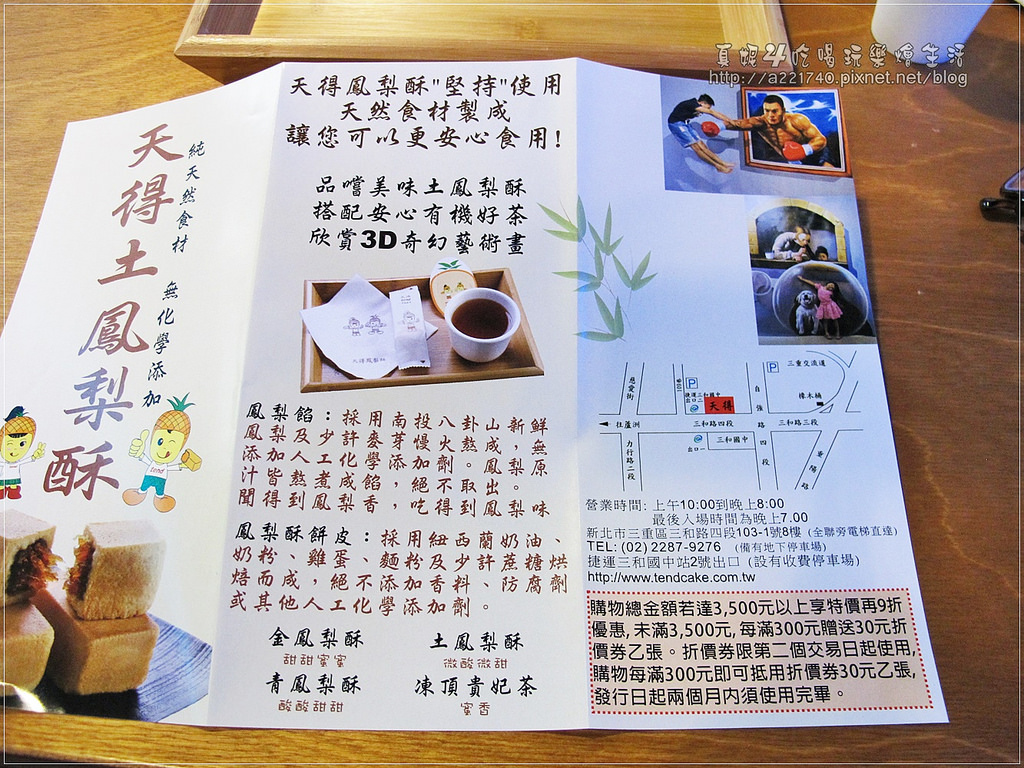 夏妮24吃喝玩樂燴生活
http://a221740.pixnet.net/blog
天得土鳳梨酥
純天然食材 無化學添加
天得鳳梨酥"堅持"使用
天然食材製成
讓您可以更安心食用!
品嚐美味土鳳梨酥
搭配安心有機好茶
欣賞3D奇幻藝術畫
鳳梨餡：採用南投八卦山新鮮
鳳梨及少許麥芽慢火熬成，無
添加人工化學添加劑。鳳梨原
汁皆熬煮成餡，絕不取出。
聞得到鳳梨香，吃得到鳳梨味
鳳梨酥餅皮：採用紐西蘭奶油、
奶粉、雞蛋、麵粉及少許蔗糖烘
焙而成，絕不添加香料、防腐劑
或其他人工化學添加劑。
金鳳梨酥
甜甜蜜蜜
土鳳梨酥
微酸微甜
青鳳梨酥
酸酸甜甜
凍頂貴妃茶
蜜香
慈愛街
103巷
P
捷運三和國中
出口二
天得
自強路四段
P
三重交流道
橡木桶
往蘆洲
三和路四段
三和路三段
力行路二段
出口一
三和國中
重陽路
營業時間: 上午10:00到晚上8:00
最後入場時間為晚上7.00
新北市三重區三和路四段103-1號8樓 (全聯旁電梯直達)
TEL: (02) 2287-9276 (備有地下停車場)
捷運三和國中站2號出口 (設有收費停車場)
http://www.tendcake.com.tw
購物總金額若達3,500元以上享特價再9折
優惠, 未滿3,500元, 每滿300元贈送30元折
價券乙張。折價券限第二個交易日起使用,
購物每滿300元即可抵用折價券30元乙張,
發行日起兩個月內須使用完畢。